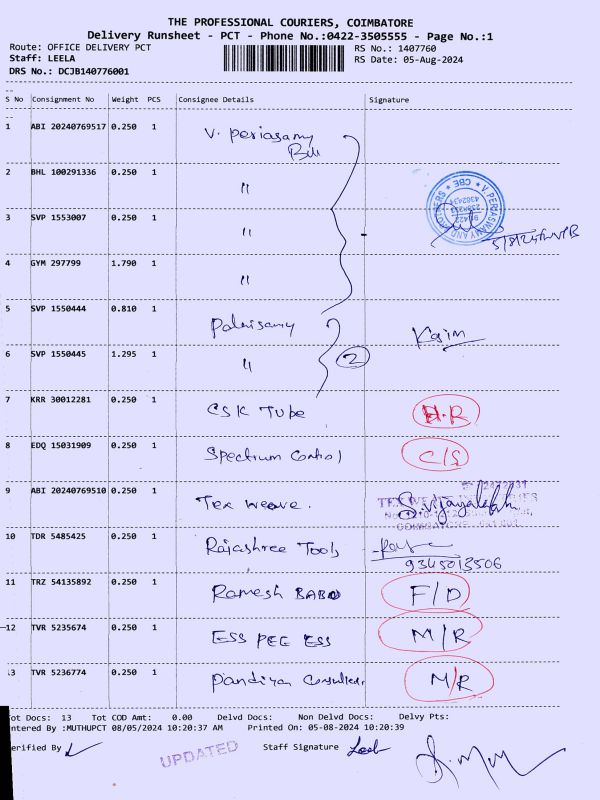 THE PROFESSIONAL COURIERS, COIMBATORE
Delivery Runsheet - PCT - Phone No.:0422-3505555 - Page No.:1
Route: OFFICE DELIVERY PCT
Staff: LEELA
DRS No.: DCJB140776001
RS No.: 1407760
RS Date: 05-Aug-2024
S No Consignment No Weight PCS Consignee Details Signature
1 ABI 20240769517 0.250 1 V. Periasamy
2 BHL 100291336 0.250 1 "
3 SVP 1553007 0.250 1 "
4 GYM 297799 1.790 1 "
5 SVP 1550444 0.810 1 Palnisamy
6 SVP 1550445 1.295 1 " 2
7 KRR 30012281 0.250 1 CSK Tube H.R
8 EDQ 15031909 0.250 1 Spectrum Control C/S
9 ABI 20240769510 0.250 1 Tex weave.
10 TDR 5485425 0.250 1 Rajashree Tools
9345013506
11 TRZ 54135892 0.250 1 Ramesh BABU F/D
12 TVR 5235674 0.250 1 ESS PEE ESS M/R
13 TVR 5236774 0.250 1 Pandiyan M/R
ot Docs: 13 Tot COD Amt: 0.00 Delvd Docs: Non Delvd Docs: Delvy Pts:
ntered By :MUTHUPCT 08/05/2024 10:20:37 AM Printed On: 05-08-2024 10:20:39
erified By UPDATED Staff Signature